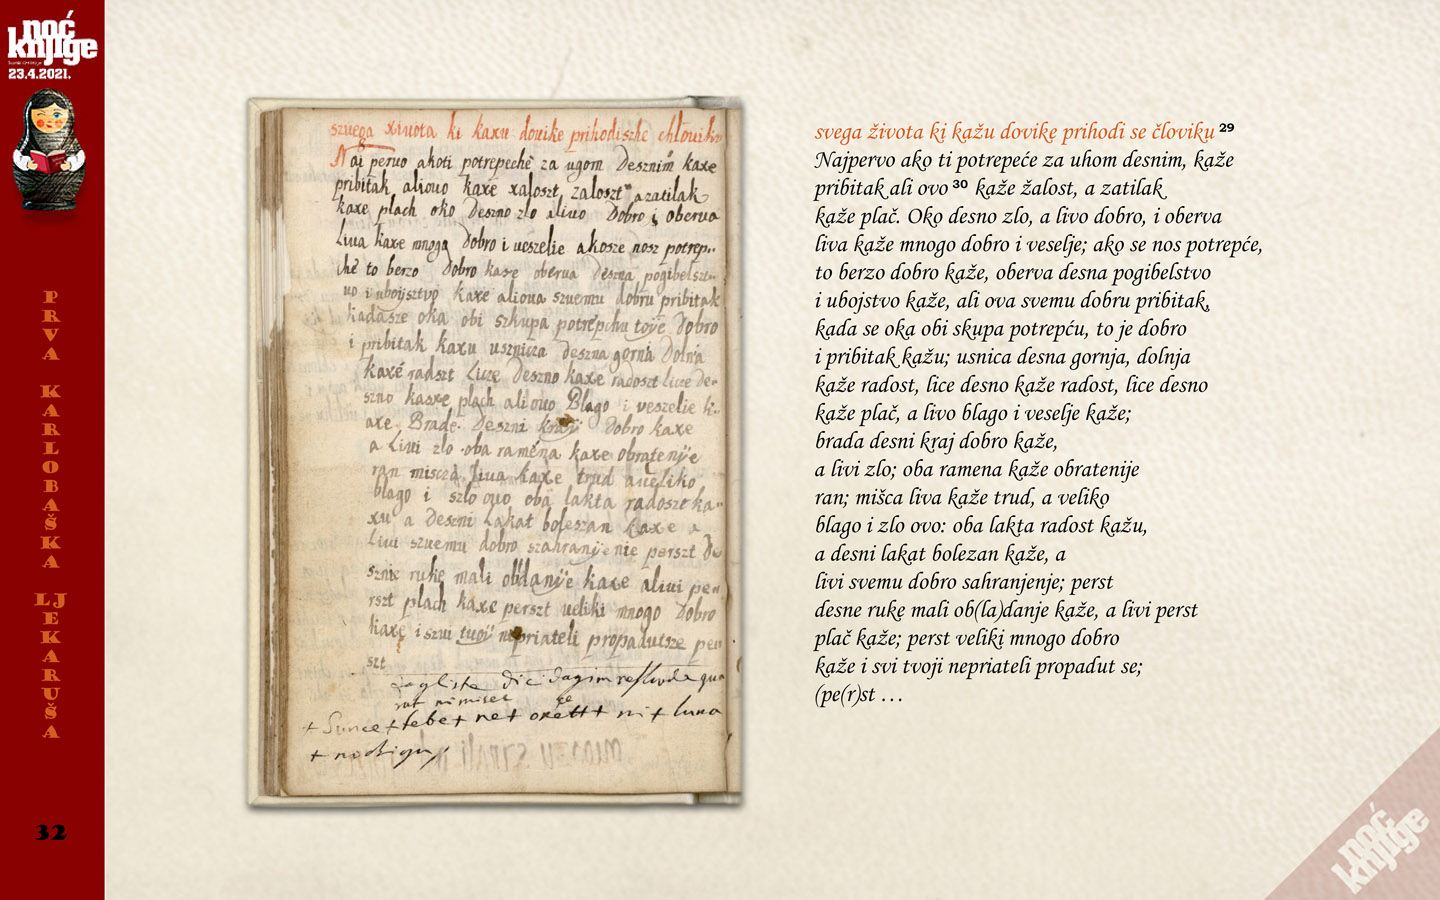 noć
knjige
23.4.2021.
PRVA KARLOBAŠKA LJEKARUŠA
32
szuega xiuota ki kaxu douike prihodiszhe chlouiku
Nai peruo akoti potrepeche za ugom desznim kaxe
pribitak aliouo kaxe xaloszt zaloszt azatilak
kaxe plach oko deszno zlo aliuo dobro i oberua
liua kaxe mnogo dobro i ueszelie akosze nosz potrep..
che to berzo dobro kaxe oberua deszna pogibelszt..
uo i uboijsztvo kaxe alioua szuemu dobru pribitak
kadasze oka obi szkupa potrepchu toye dobro
i pribitak kaxu usznicza deszna gorna dolna
kaxe radszt lice deszno kaxe radoszt lice de..
szno kaxe plach aliouo blago i veszelie k..
axe Brade deszni kraij dobro kaxe
a liui zlo oba ramena kaxe obratenÿe
ran miscza liua kaxe trud aueliko
blago i szlo ouo oba lakta radoszt ka..
xu a deszni lakat boleszan kaxe a
liui szuemu dobro szahranÿenie perszt de
sznie ruke mali obdanÿe kaxe aliui pe..
rszt plach kaxe perszt ueliki mnogo dobro
kaxe i szui tuoÿ nepriateli propadutsze per
szt
+ Sunce + tebe + ne + + ni + luna
+
svega života ki kažu dovike prihodi se človiku 29
Najpervo ako ti potrepeće za uhom desnim, kaže
pribitak ali ovo 30 kaže žalost, a zatilak
kaže plač. Oko desno zlo, a livo dobro, i oberva
liva kaže mnogo dobro i veselje; ako se nos potrepće,
to berzo dobro kaže, oberva desna pogibelstvo
i ubojstvo kaže, ali ova svemu dobru pribitak,
kada se oka obi skupa potrepću, to je dobro
i pribitak kažu; usnica desna gornja, dolnja
kaže radost, lice desno kaže radost, lice desno
kaže plač, a livo blago i veselje kaže;
brada desni kraj dobro kaže,
a livi zlo; oba ramena kaže obratenije
ran; mišca liva kaže trud, a veliko
blago i zlo ovo: oba lakta radost kažu,
a desni lakat bolezan kaže, a
livi svemu dobro sahranjenje; perst
desne ruke mali ob(la)danje kaže, a livi perst
plač kaže; perst veliki mnogo dobro
kaže i svi tvoji nepriateli propadut se;
(pe(r)st ...
noć
knjige